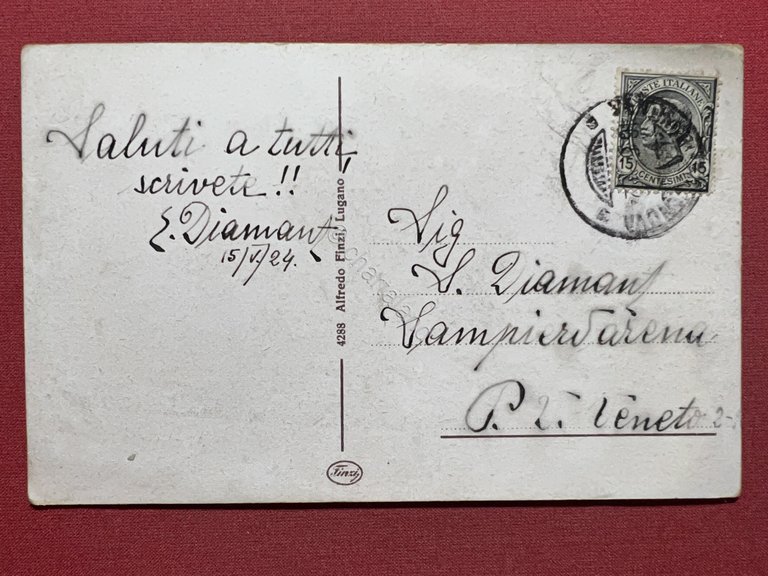 Saluti a tutti,
scrivete!!
E. Diamant
15/V/24.
4288 Alfredo Finzi, Lugano
Finzi
POSTE ITALIANE
15 15
CENTESIMI
Sig
S. Diamant
Sampierdarena
P. V. Veneto 2-